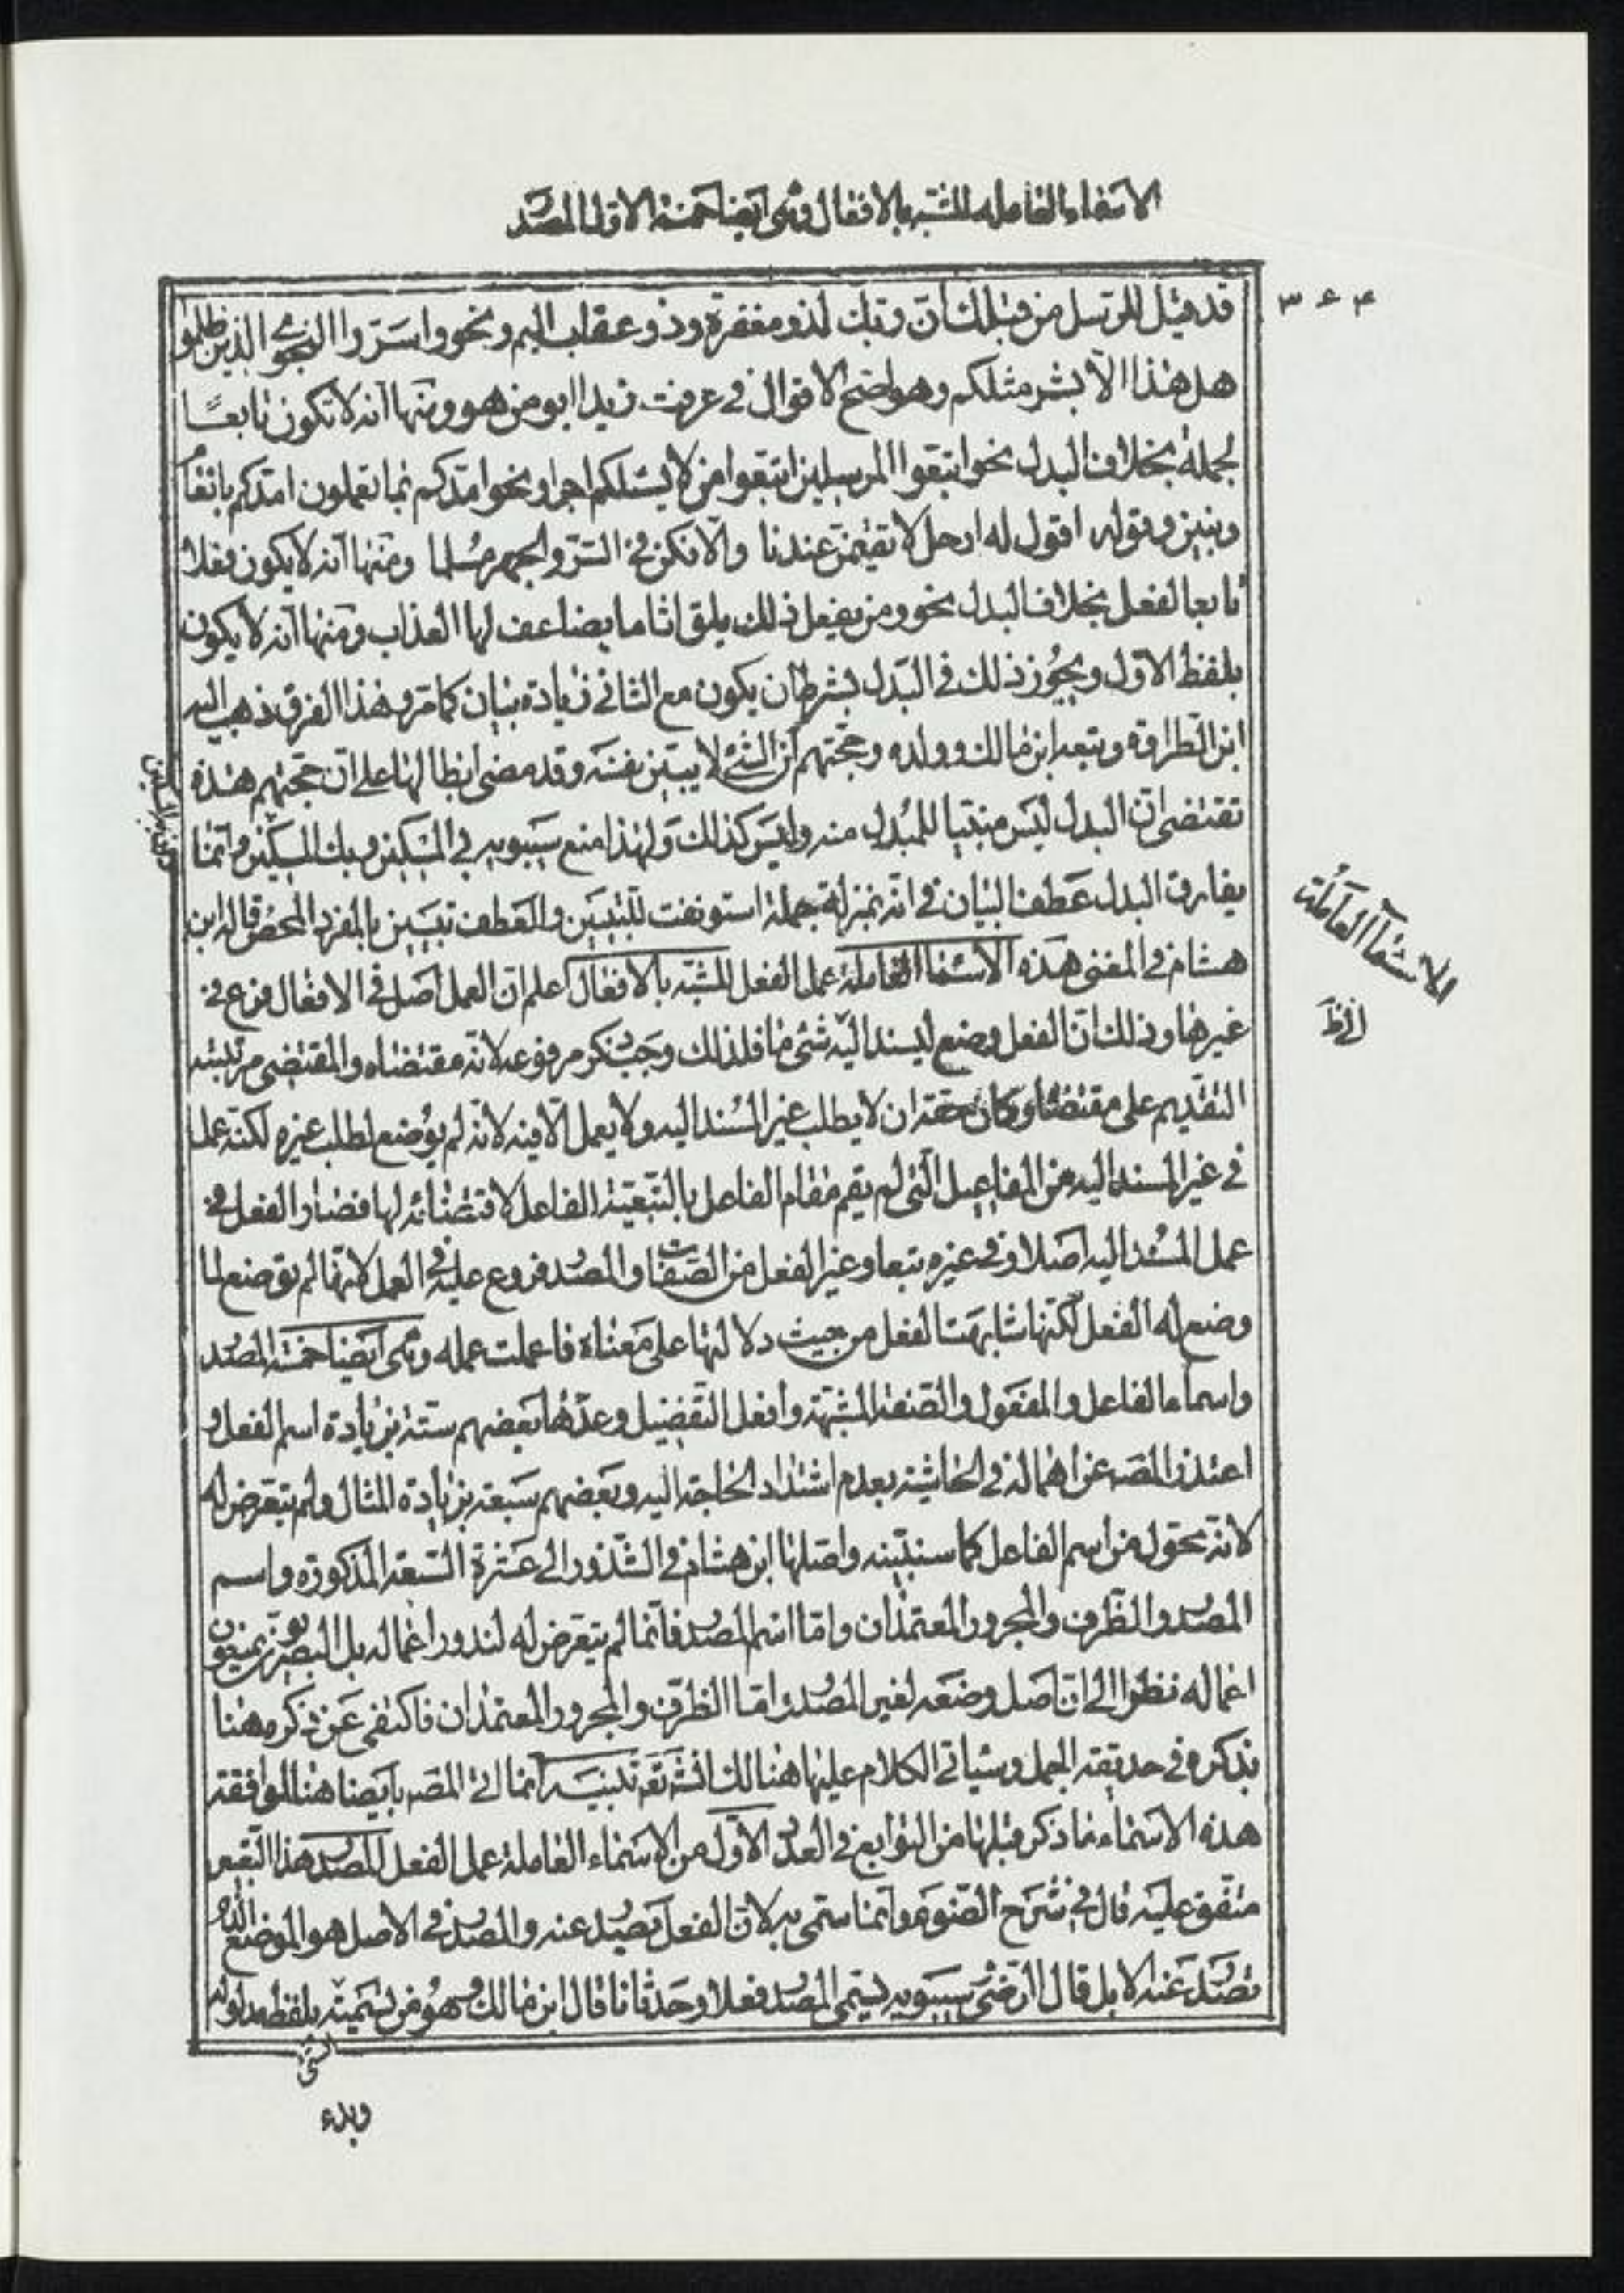 الاسماء العاملة المشبه بالافعال وهى ايضا خمسة الاول المصدر
٣۶۴
قد قيل للرسل من قبلك ان ربك لذو مغفرة وذو عقاب اليم ونحو واسرّوا النجوى الذين ظلموا
هل هذا الّا بشر مثلكم وهو اصح الاقوال فى عرفت زيدا ابو من هو ومنها انه لا تكون تابعًا
لجملة بخلاف البدل نحو اتبعوا المرسلين اتبعوا من لا يسئلكم اجرا ونحو امدّكم بما تعملون امدّكم بانعام
وبنين وقوله اقول له ارحل لا تقيمنّ عندنا والّا فكن فى السرّ والجهر مسلما ومنها انه لا يكون فعلا
تابعا لفعل بخلاف البدل نحو ومن يفعل ذلك يلق اثاما يضاعف لها العذاب ومنها انه لا يكون
بلفظ الاوّل ويجوز ذلك فى البدل بشرط ان يكون مع الثانى زيادة بيان كما مرّ وهذا الفرق ذهب اليه
ابن الطراوة وتبعه ابن مالك وولده وحجّتهم انّ الشئ لا يبيّن نفسه وقد مضى ابطالها على ان حجتهم هذه
تقتضى انّ البدل ليس مبيّنا للمبدل منه وليس كذلك ولهذا منع سيبويه فى المسكين وبك المسكين وانّما
يفارق البدل عطف البيان فى انّه بمنزلة جملة استونفت للتبيين والعطف تبيين بالمفرد المحض قاله ابن
هشام فى المغنى هذه الاسماء العاملة عمل الفعل المشبّه بالافعال اعلم ان العمل اصل فى الافعال فرع فى
الاسماء العاملة
غيرها وذلك انّ الفعل وضع ليسند اليه شئ ما فلذلك وجب ذكر مرفوعه لانّه مقتضاه والمقتضى مرتبته
التقديم على مقتضاه وكان حقه ان لا يطلب غير المسند اليه ولا يعمل الّا فيه لانّه لم يوضع لطلب غيره لكنّه عمل
فى غير المسند اليه من المفاعيل الّتى لم يقم مقام الفاعل بالتبعيّة الفاعل لاقتضائه لها فصار الفعل فى
عمل المسند اليه اصلا وفى غيره تبعا وغير الفعل من الصفات والمصدر فروع عليه فى العمل لانّها لم توضع لما
وضع له الفعل لكنّها شابهت الفعل من حيث دلالتها على معناه فاعملت عمله وهى ايضا خمسة المصدر
واسماء الفاعل والمفعول والصّفة المشبّهة وافعل التفضيل وعدّها بعضهم ستّة بزيادة اسم الفعل و
اعتذر المصـ عن اهماله فى الحاشية بعدم اشتداد الحاجة اليه وبعضهم سبعة بزيادة المثال ولم يتعرض له
لانّه محوّل من اسم الفاعل كما سنبيّنه واصلها ابن هشام فى الشّذور الى عشرة السّبعة المذكورة واسم
المصدر والظرف والمجرور المعتمدان وامّا اسم المصدر فانّما لم يتعرض له لندور اعماله بل البصريون يمنعون
اعماله نظرا الى انّ اصل وضعه لغير المصدر وامّا الظرف والمجرور المعتمدان فاكتفى عن ذكره هنا
بذكره فى حديقة الجمل وسيأتى الكلام عليها هنالك انشاء الله تنبيه انما اتى المصـ بايضا هنا لموافقة
هذه الاسماء ما ذكر قبلها من التوابع فى العدد الاوّل من الاسماء العاملة عمل الفعل المصدر هذا التعبير
متّفق عليه قال فى شرح الضوء وانّما سمّى به لانّ الفعل يصدر عنه والمصدر فى الاصل هو الموضع الّذى
تصدر عنه الابل قال الرضى سيبويه يسمّى المصدر فعلا وحدثانا قال ابن مالك وهو من تسمية بلفظ مدلوله
وبدء